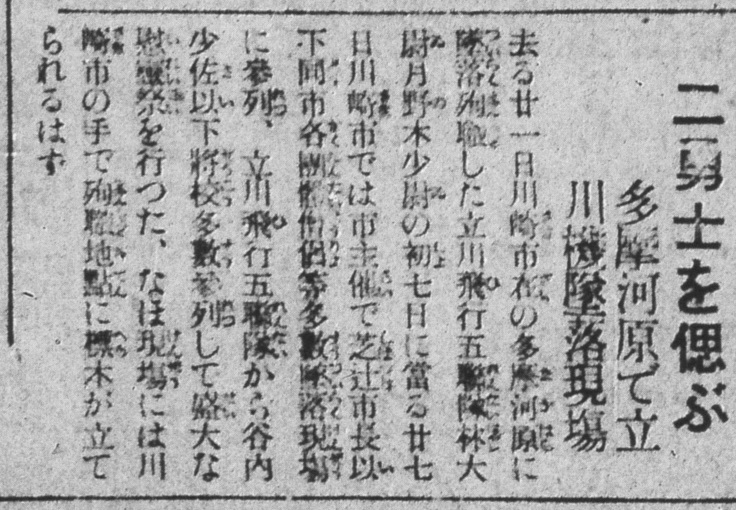 二勇士を偲ぶ
多摩河原で立
川機墜落現場
去る廿一日川崎市在の多摩河原に
墜落殉職した立川飛行五聯隊林大
尉月野木少尉の初七日に當る廿七
日川崎市では市主催で芝辻市長以
下同市各團體僧侶等多數墜落現場
に參列、立川飛行五聯隊から谷内
少佐以下將校多數參列して盛大な
慰靈祭を行つた、なほ現場には川
崎市の手で殉職地點に標木が立て
られるはず